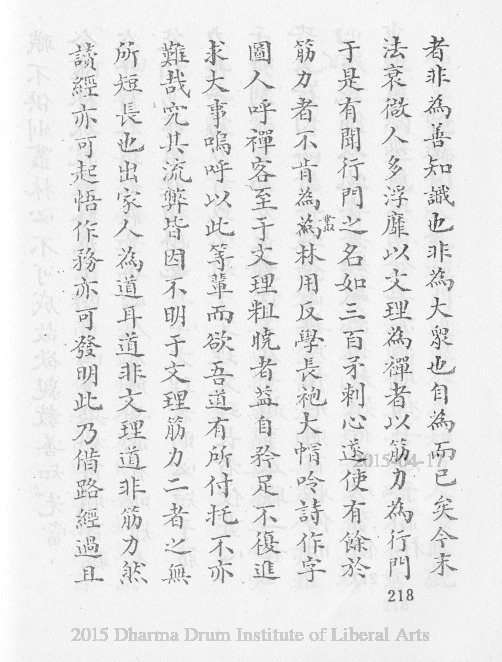 者非為善知識也非為大眾也自為而已矣今末
法衰微人多浮靡以文理為禪者以筋力為行門
于是有聞行門之名如三百矛刺心遂使有餘於
筋力者不肯為叢林用反學長袍大帽吟詩作字
圖人呼禪客至于文理粗曉者益自矜足不復進
求大事嗚呼以此等輩而欲吾道有所付托不亦
難哉究其流弊皆因不明于文理筋力二者之無
所短長也出家人為道耳道非文理道非筋力然
讀經亦可起悟作務亦可發明此乃借路經過且
218
2015-04-17
2015 Dharma Drum Institute of Liberal Arts